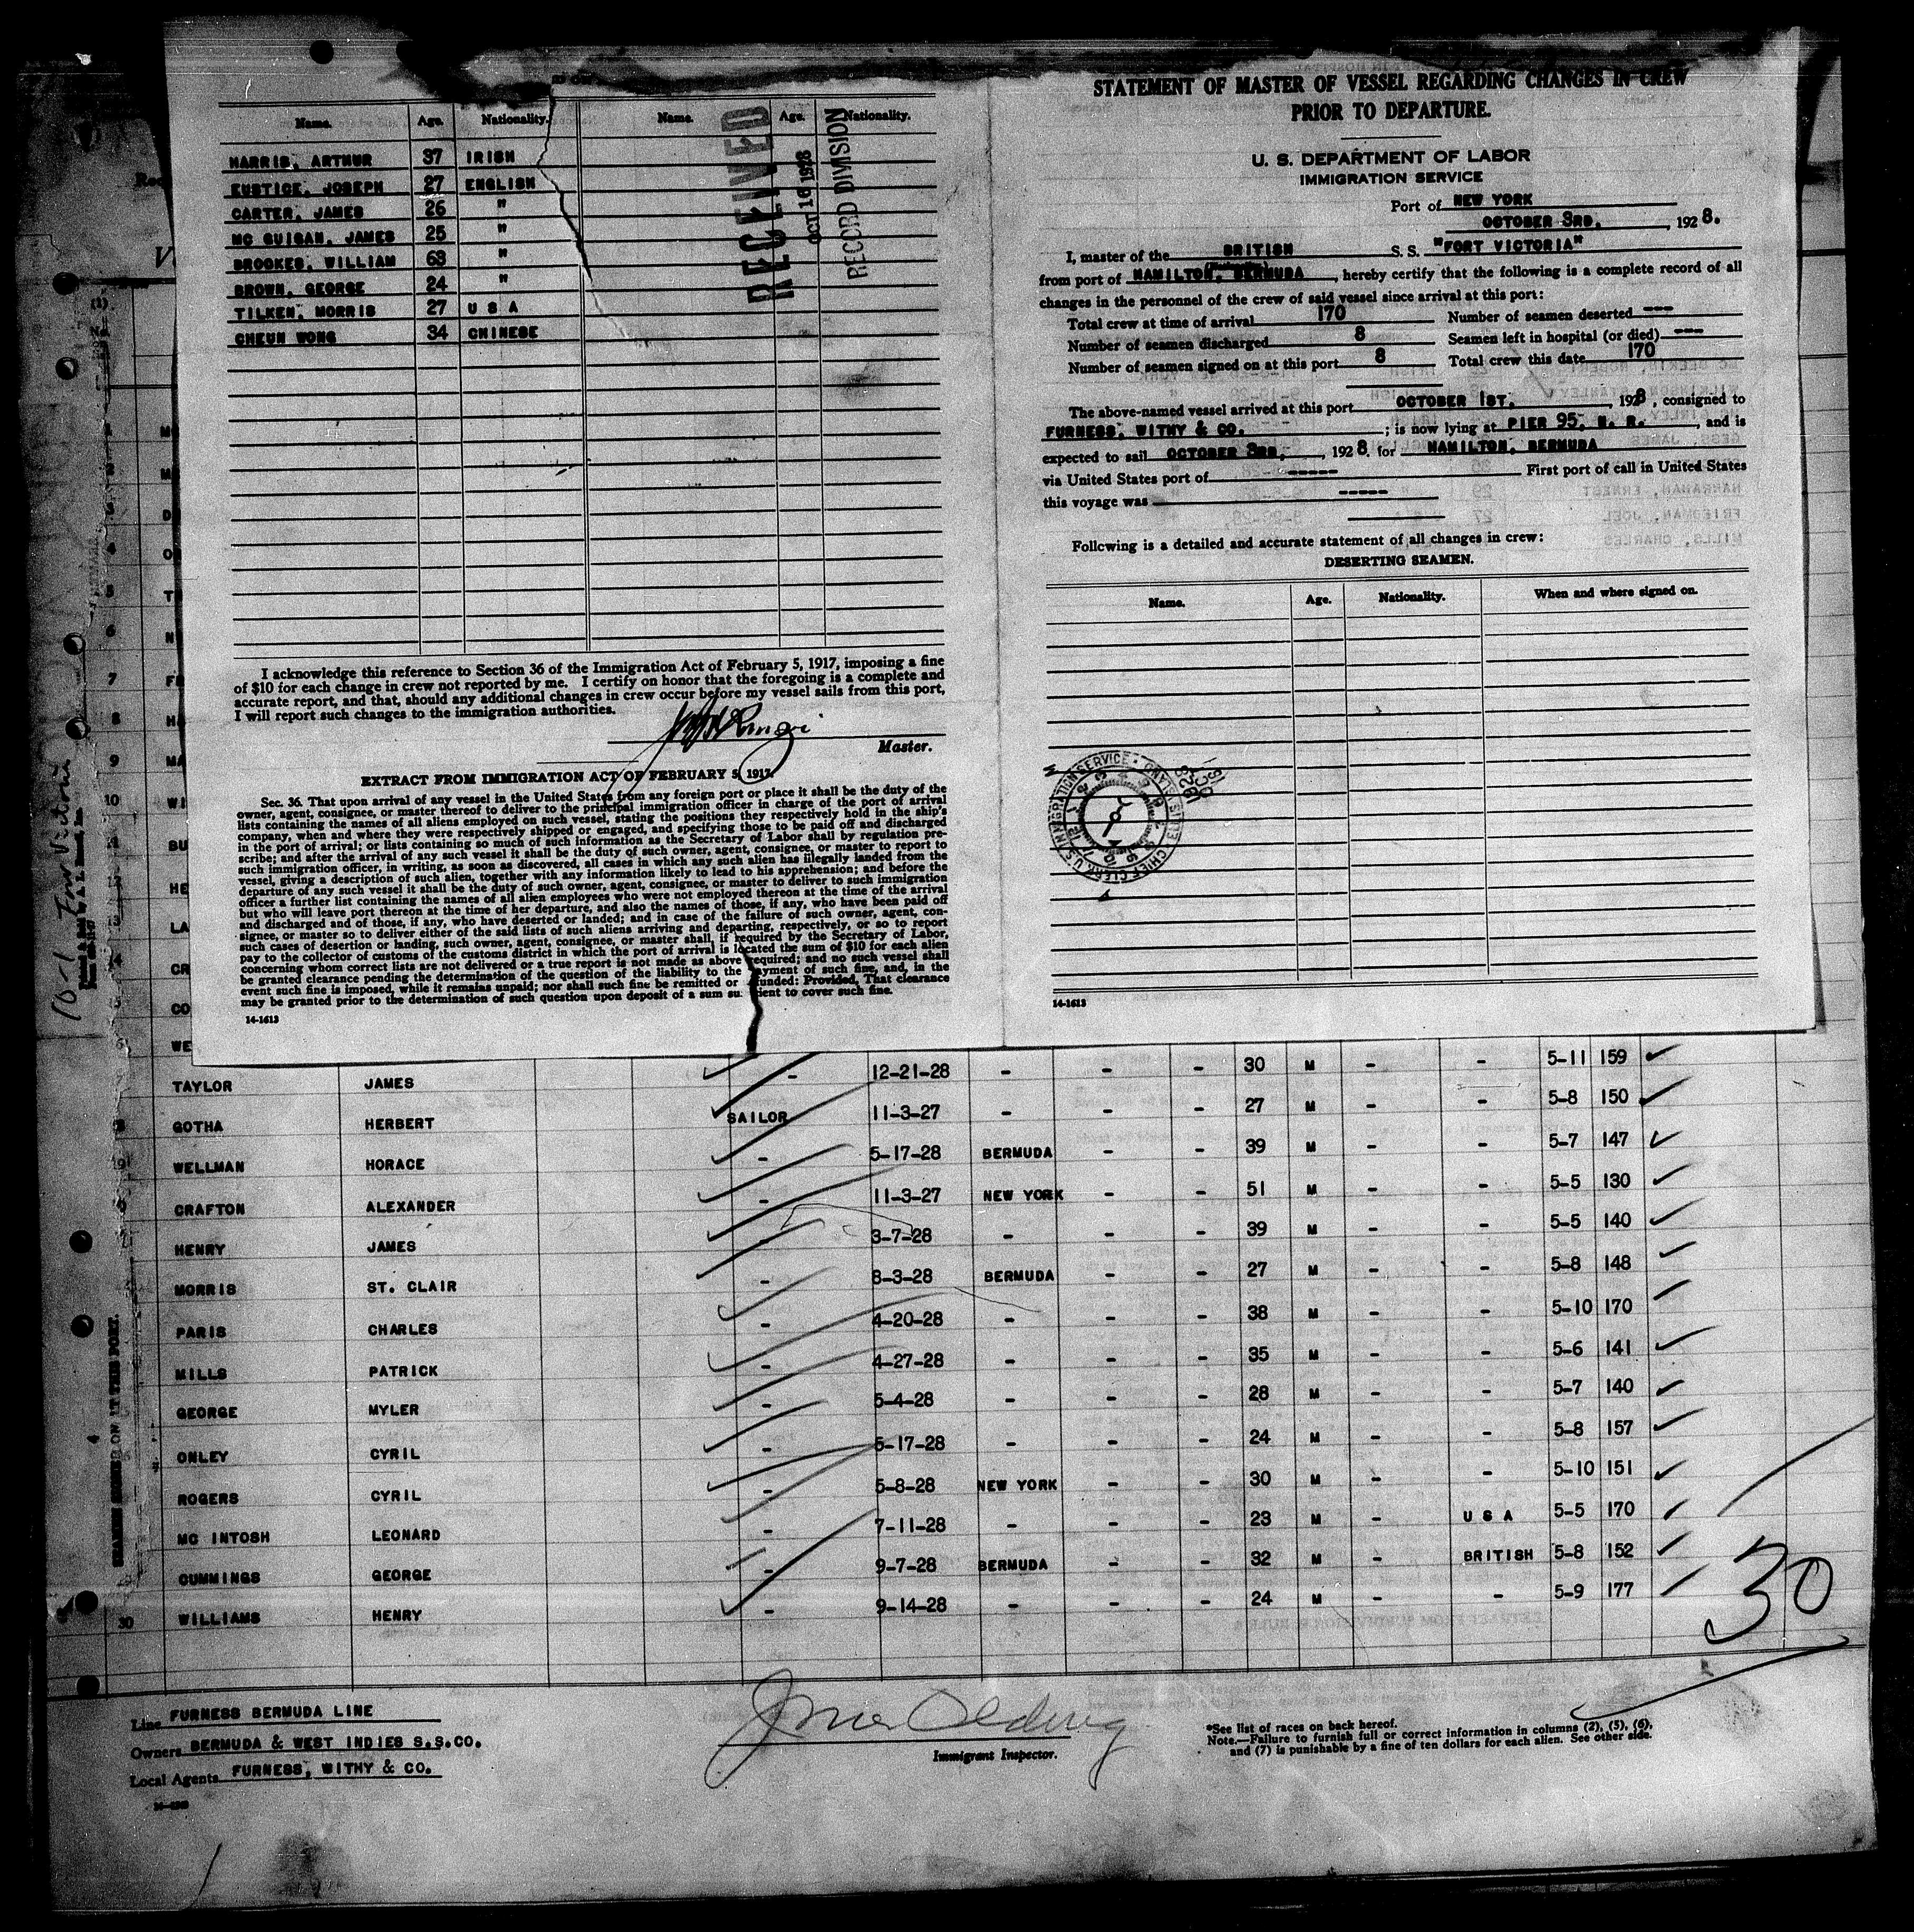 Name. Age. Nationality. Name. Age. Nationality.
HARRIS, ARTHUR 37 IRISH
EUSTICE, JOSEPH 27 ENGLISH
CARTER, JAMES 26 "
MC GUIGAN, JAMES 25 "
BROOKES, WILLIAM 63 "
BROWN, GEORGE 24 "
TILKEN, MORRIS 27 U S A
CHEUN WONG 34 CHINESE
RECEIVED
OCT 16 1928
RECORD DIVISION
I acknowledge this reference to Section 36 of the Immigration Act of February 5, 1917, imposing a fine
of $10 for each change in crew not reported by me. I certify on honor that the foregoing is a complete and
accurate report, and that, should any additional changes in crew occur before my vessel sails from this port,
I will report such changes to the immigration authorities.
Master.
EXTRACT FROM IMMIGRATION ACT OF FEBRUARY 5, 1917.
Sec. 36. That upon arrival of any vessel in the United States from any foreign port or place it shall be the duty of the
owner, agent, consignee, or master thereof to deliver to the principal immigration officer in charge of the port of arrival
lists containing the names of all aliens employed on such vessel, stating the positions they respectively hold in the ship's
company, when and where they were respectively shipped or engaged, and specifying those to be paid off and discharged
in the port of arrival; or lists containing so much of such information as the Secretary of Labor shall by regulation pre-
scribe; and after the arrival of any such vessel it shall be the duty of such owner, agent, consignee, or master to report to
such immigration officer, in writing, as soon as discovered, all cases in which any such alien has illegally landed from the
vessel, giving a description of such alien, together with any information likely to lead to his apprehension; and before the
departure of any such vessel it shall be the duty of such owner, agent, consignee, or master to deliver to such immigration
officer a further list containing the names of all alien employees who were not employed thereon at the time of the arrival
but who will leave port thereon at the time of her departure, and also the names of those, if any, who have been paid off
and discharged and of those, if any, who have deserted or landed; and in case of the failure of such owner, agent, con-
signee, or master so to deliver either of the said lists of such aliens arriving and departing, respectively, or so to report
such cases of desertion or landing, such owner, agent, consignee, or master shall, if required by the Secretary of Labor,
pay to the collector of customs of the customs district in which the port of arrival is located the sum of $10 for each alien
concerning whom correct lists are not delivered or a true report is not made as above required; and no such vessel shall
be granted clearance pending the determination of the question of the liability to the payment of such fine, and, in the
event such fine is imposed, while it remains unpaid; nor shall such fine be remitted or funded: Provided, That clearance
may be granted prior to the determination of such question upon deposit of a sum su cient to cover such fine.
14-1613
STATEMENT OF MASTER OF VESSEL REGARDING CHANGES IN CREW
PRIOR TO DEPARTURE.
U. S. DEPARTMENT OF LABOR
IMMIGRATION SERVICE
Port of NEW YORK
OCTOBER 3RD, , 1928.
I, master of the BRITISH S. S. "FORT VICTORIA"
from port of HAMILTON, BERMUDA , hereby certify that the following is a complete record of all
changes in the personnel of the crew of said vessel since arrival at this port:
Total crew at time of arrival 170 Number of seamen deserted ---
Number of seamen discharged 8 Seamen left in hospital (or died) ---
Number of seamen signed on at this port 8 Total crew this date 170
The above-named vessel arrived at this port OCTOBER 1ST. , 1928 , consigned to
FURNESS, WITHY & CO. ; is now lying at PIER 95, N. R. , and is
expected to sail OCTOBER 3RD, , 1928. for HAMILTON, BERMUDA
via United States port of ----- First port of call in United States
this voyage was -----
Following is a detailed and accurate statement of all changes in crew:
DESERTING SEAMEN.
Name. Age. Nationality. When and where signed on.
U.S. IMMIGRATION SERVICE · ELLIS ISLAND · CHIEF CLERK
14-1613
10-1 Fort Victoria
TAYLOR JAMES - 12-21-28 - - - 30 M - - 5-11 159
GOTHA HERBERT SAILOR 11-3-27 - - - 27 M - - 5-8 150
WELLMAN HORACE - 5-17-28 BERMUDA - - 39 M - - 5-7 147
CRAFTON ALEXANDER - 11-3-27 NEW YORK - - 51 M - - 5-5 130
HENRY JAMES - 3-7-28 - - - 39 M - - 5-5 140
MORRIS ST. CLAIR - 8-3-28 BERMUDA - - 27 M - - 5-8 148
PARIS CHARLES - 4-20-28 - - - 38 M - - 5-10 170
MILLS PATRICK - 4-27-28 - - - 35 M - - 5-6 141
GEORGE MYLER - 5-4-28 - - - 28 M - - 5-7 140
ONLEY CYRIL - 5-17-28 - - - 24 M - - 5-8 157
ROGERS CYRIL - 5-8-28 NEW YORK - - 30 M - - 5-10 151
MC INTOSH LEONARD - 7-11-28 - - - 23 M - U S A 5-5 170
CUMMINGS GEORGE - 9-7-28 BERMUDA - - 32 M - BRITISH 5-8 152
30 WILLIAMS HENRY - 9-14-28 - - - 24 M - - 5-9 177
30
Line FURNESS BERMUDA LINE
Owners BERMUDA & WEST INDIES S.S.CO.
Local Agents FURNESS, WITHY & CO.
Immigrant Inspector.
*See list of races on back hereof.
Note.—Failure to furnish full or correct information in columns (2), (5), (6),
and (7) is punishable by a fine of ten dollars for each alien. See other side.